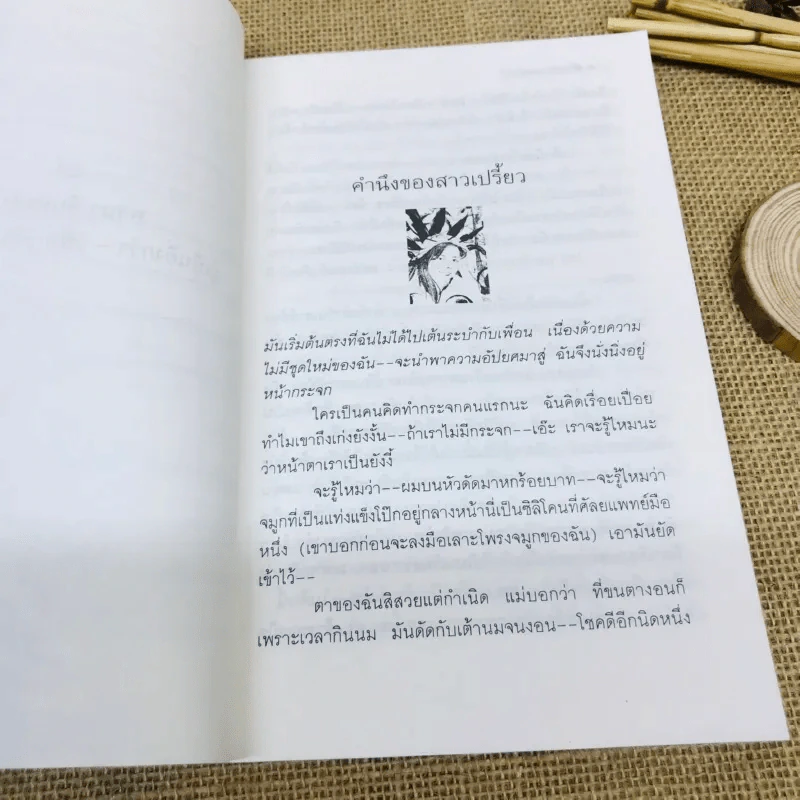 คำนึงของสาวเปรี้ยว
มันเริ่มต้นตรงที่ฉันไม่ได้ไปเต้นระบำกับเพื่อน เนื่องด้วยความ
ไม่มีชุดใหม่ของฉัน--จะนำพาความอัปยศมาสู่ ฉันจึงนั่งนิ่งอยู่
หน้ากระจก
ใครเป็นคนคิดทำกระจกคนแรกนะ ฉันคิดเรื่อยเปื่อย
ทำไมเขาถึงเก่งยังงั้น--ถ้าเราไม่มีกระจก--เอ๊ะ เราจะรู้ไหมนะ
ว่าหน้าตาเราเป็นยังงี้
จะรู้ไหมว่า--ผมบนหัวดัดมาหกร้อยบาท--จะรู้ไหมว่า
จมูกที่เป็นแท่งแข็งโป๊กอยู่กลางหน้านี่เป็นซิลิโคนที่ศัลยแพทย์มือ
หนึ่ง (เขาบอกก่อนจะลงมือเลาะโพรงจมูกของฉัน) เอามันยัด
เข้าไว้--
ตาของฉันสิสวยแต่กำเนิด แม่บอกว่า ที่ขนตางอนก็
เพราะเวลากินนม มันดัดกับเต้านมจนงอน--โชคดีอีกนิดหนึ่ง